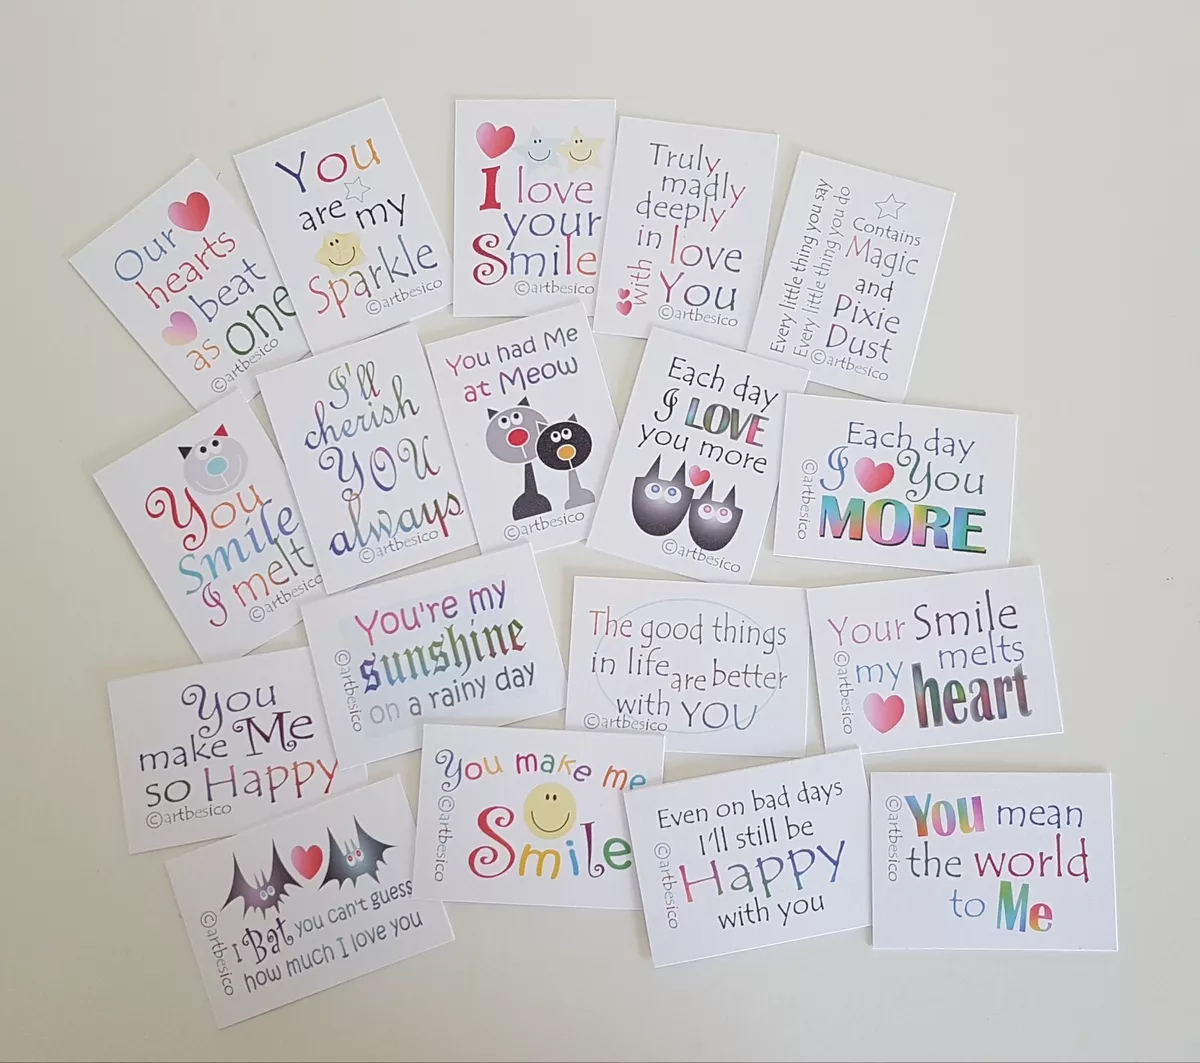 Our
hearts
beat
as one
©artbesico
You
are my
Sparkle
©artbesico
I love
your
Smile
©artbesico
Truly
madly
deeply
in love
with You
©artbesico
Every little thing you say
Every little thing you do
Contains
Magic
and
Pixie
Dust
©artbesico
You
Smile
I melt
©artbesico
I'll
cherish
YOU
always
©artbesico
You had Me
at Meow
©artbesico
Each day
I LOVE
you more
©artbesico
Each day
I You
MORE
©artbesico
You're my
sunshine
on a rainy day
©artbesico
The good things
in life are better
with YOU
©artbesico
Your Smile
melts
my heart
©artbesico
You
make Me
so Happy
©artbesico
You make me
Smile
©artbesico
Even on bad days
I'll still be
Happy
with you
©artbesico
You mean
the world
to Me
©artbesico
I Bat you can't guess
how much I love you
©artbesico